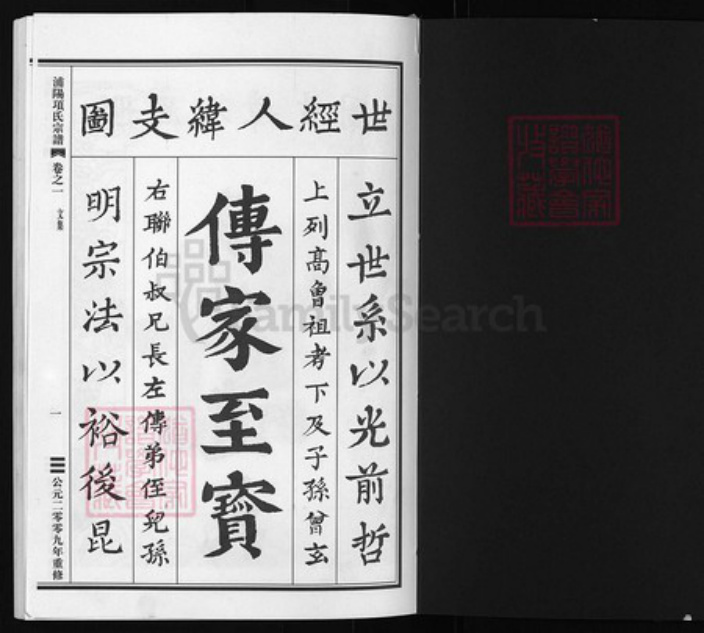 世經人緯支圖
立世系以光前哲
上列高曾祖考下及子孫曾玄
傳家至寶
右聯伯叔兄長左傳弟侄兒孫
明宗法以裕後昆
浦陽項氏宗譜 卷之一 文集 一 公元二零零九年重修
FamilySearch